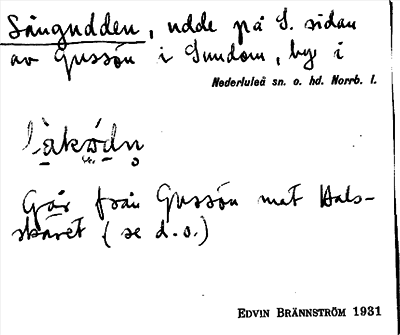 Sångudden, udde på S. sidan
av Gussön i Sundom, by i
Nederluleå sn. o. hd. Norrb. l.
Går från Gussön mot Hals-
skäret (se d.o.)
EDVIN BRÄNNSTRÖM 1931